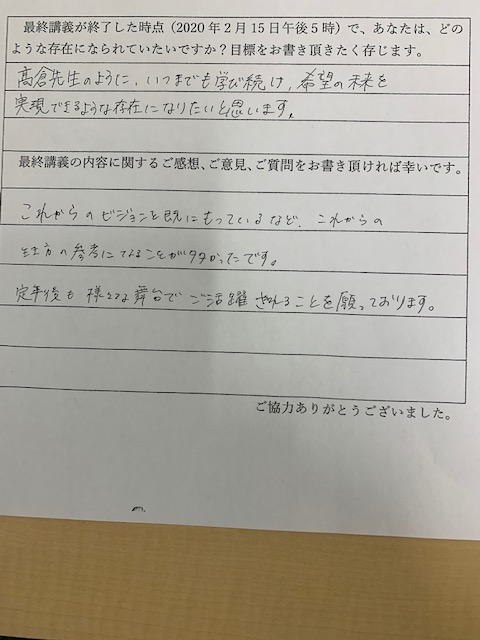 最終講義が終了した時点（2020年2月15日午後5時）で、あなたは、どの
ような存在になられていたいですか？目標をお書き頂きたく存じます。
高倉先生のように、いつまでも学び続け、希望の未来を
実現できるような存在になりたいと思います。
最終講義の内容に関するご感想、ご意見、ご質問をお書き頂ければ幸いです。
これからのビジョンを既にもっているなど、これからの
生き方の参考になることが多かったです。
定年後も様々な舞台でご活躍されることを願っております。
ご協力ありがとうございました。